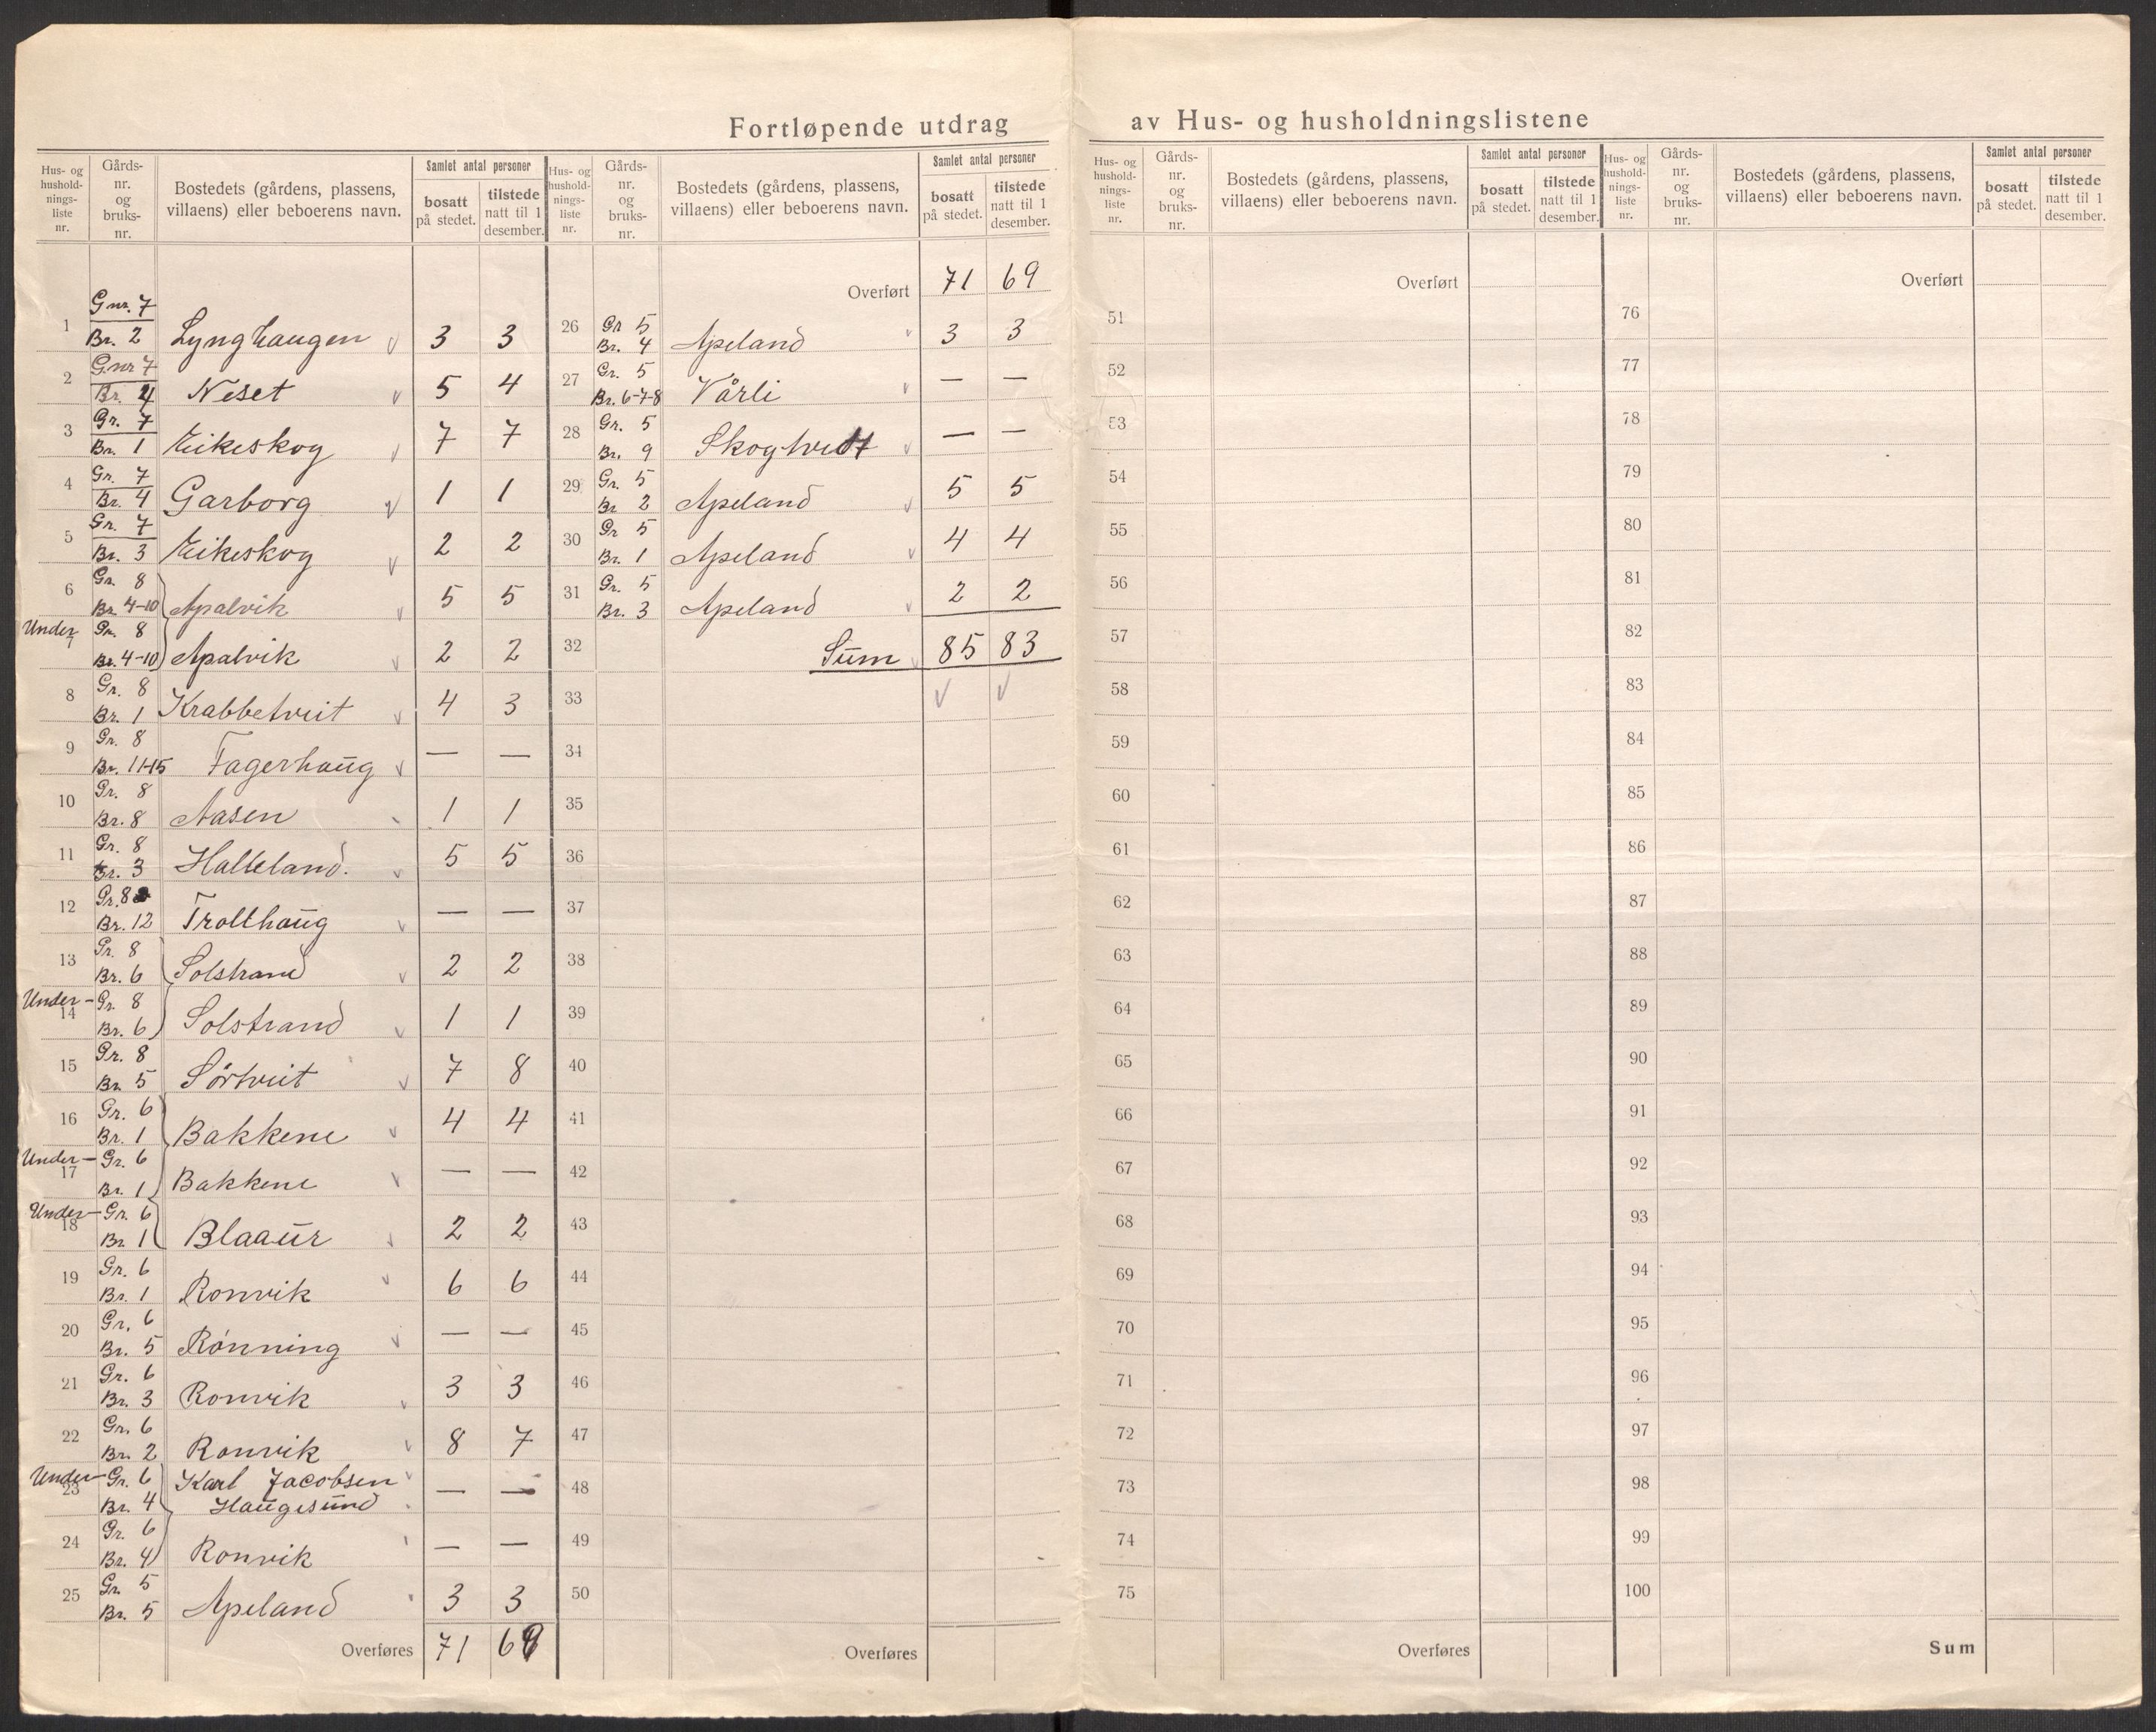 Fortløpende utdrag av Hus- og husholdningslistene
Hus- og hushold- nings- liste nr. Gårds- nr. og bruks- nr. Bostedets (gårdens, plassens, villaens) eller beboerens navn. Samlet antal personer bosatt på stedet. tilstede natt til 1 desember.
Hus- og hushold- nings- liste nr. Gårds- nr. og bruks- nr. Bostedets (gårdens, plassens, villaens) eller beboerens navn. Samlet antal personer bosatt på stedet. tilstede natt til 1 desember.
Hus- og hushold- nings- liste nr. Gårds- nr. og bruks- nr. Bostedets (gårdens, plassens, villaens) eller beboerens navn. Samlet antal personer bosatt på stedet. tilstede natt til 1 desember.
Hus- og hushold- nings- liste nr. Gårds- nr. og bruks- nr. Bostedets (gårdens, plassens, villaens) eller beboerens navn. Samlet antal personer bosatt på stedet. tilstede natt til 1 desember.
1 Gnr. 7 Br. 2 Lynghaugen 3 3
2 Gnr 7 Br. 4 Neset 5 4
3 Gr. 7 Br. 1 Eikeskog 7 7
4 Gr. 7 Br. 4 Garborg 1 1
5 Gr. 7 Br. 3 Eikeskog 2 2
6 Gr. 8 Br. 4-10 Apalvik 5 5
Under 7 Gr. 8 Br. 4-10 Apalvik 2 2
8 Gr. 8 Br. 1 Krabbetveit 4 3
9 Gr. 8 Br. 11-15 Fagerhaug — —
10 Gr. 8 Br. 8 Aasen 1 1
11 Gr. 8 Br. 3 Halleland. 5 5
12 Gr. 8 Br. 12 Trollhaug — —
13 Gr. 8 Br. 6 Solstrand 2 2
Under- 14 Gr. 8 Br. 6 Solstrand 1 1
15 Gr. 8 Br. 5 Sørtveit 7 8
16 Gr. 6 Br. 1 Bakkene 4 4
Under- 17 Gr. 6 Br. 1 Bakkene — —
Under- 18 Gr. 6 Br. 1 Blaaur 2 2
19 Gr. 6 Br. 1 Ronvik 6 6
20 Gr. 6 Br. 5 Rønning — —
21 Gr. 6 Br. 3 Ronvik 3 3
22 Gr. 6 Br. 2 Ronvik 8 7
Under- 23 Gr. 6 Br. 4 Karl Jacobsen Haugesund — —
24 Gr. 6 Br. 4 Ronvik — —
25 Gr. 5 Br. 5 Apeland 3 3
Overføres 71 69
Overført 71 69
26 Gr 5 Br. 4 Apeland 3 3
27 Gr. 5 Br. 6-7-8 Vårli — —
28 Gr. 5 Br. 9 Skogtvedt — —
29 Gr. 5 Br 2 Apeland 5 5
30 Gr 5 Br. 1 Apeland 4 4
31 Gr. 5 Br. 3 Apeland 2 2
32 Sum 85 83
33
34
35
36
37
38
39
40
41
42
43
44
45
46
47
48
49
50
Overføres
Overført
51
52
53
54
55
56
57
58
59
60
61
62
63
64
65
66
67
68
69
70
71
72
73
74
75
Overføres
Overført
76
77
78
79
80
81
82
83
84
85
86
87
88
89
90
91
92
93
94
95
96
97
98
99
100
Sum